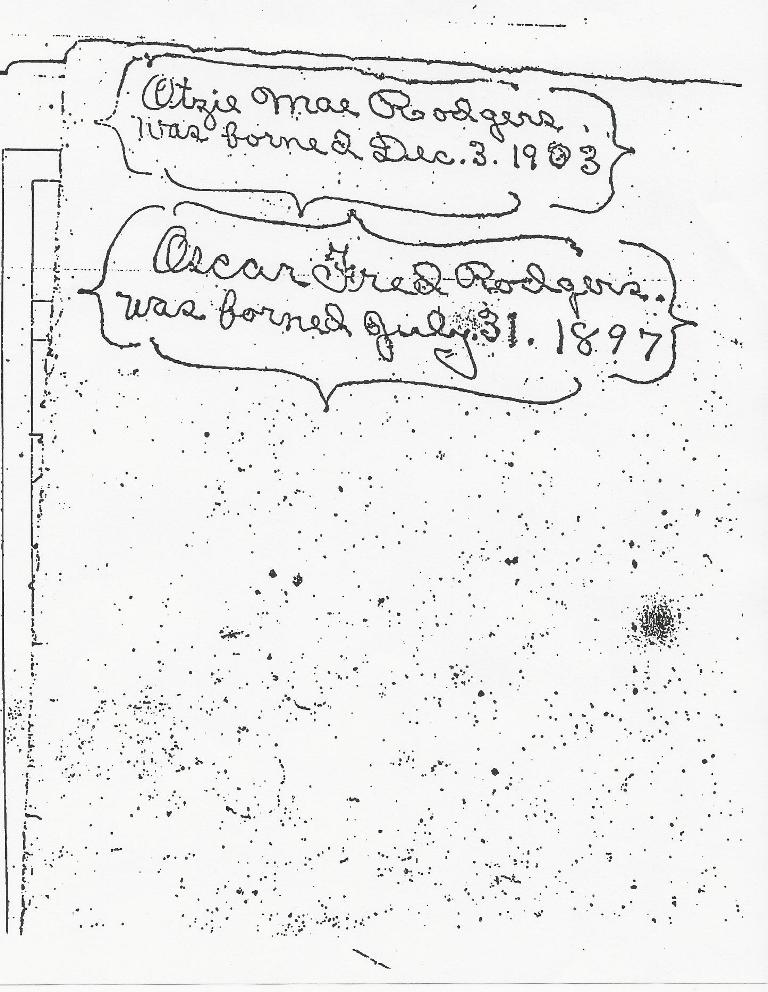 Otzie Mae Rodgers
was borned Dec. 3. 1903
Oscar Fred Rodgers.
was borned July. 31. 1897